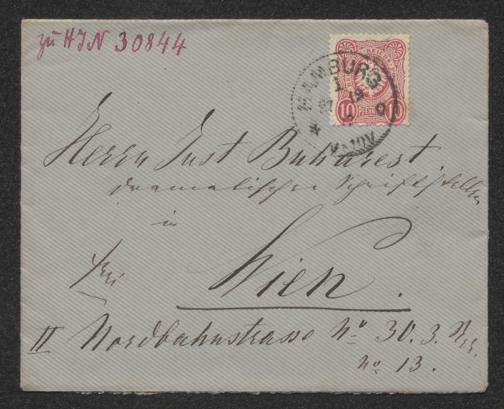 zu HIN 30844
HAMBURG
1
10 PFENNIG 10
Herrn Just Buharest
dramatischer Schriftsteller
in
frei
Wien.
II Nordbahnstrasse No 30. 3.
No 13.